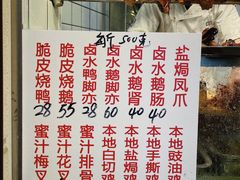 500克
脆皮烧鸭
28
脆皮烧鹅
55
卤水鸭脚亦
28
卤水鹅脚亦
60
卤水鹅肾
40
卤水鹅肠
40
盐焗凤爪
蜜汁梅叉
蜜汁花叉
蜜汁排骨
本地白切鸡
本地盐焗鸡
本地手撕鸡
本地豉油鸡